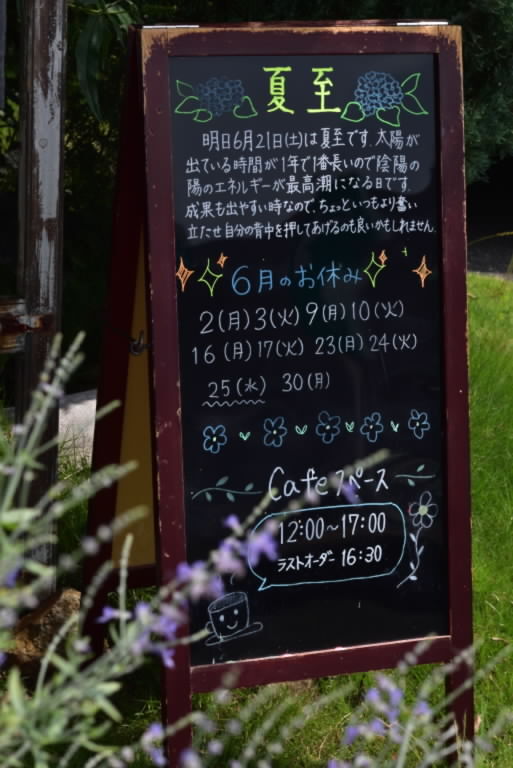 夏至
明日6月21日(土)は夏至です。太陽が
出ている時間が1年で1番長いので陰陽の
陽のエネルギーが最高潮になる日です。
成果も出やすい時なので、ちょっといつもより奮い
立たせ自分の背中を押してあげるのも良いかもしれません。
6月のお休み
2(月)3(火)9(月)10(火)
16(月)17(火) 23(月)24(火)
25(水) 30(月)
Cafeスペース
12:00～17:00
ラストオーダー 16:30